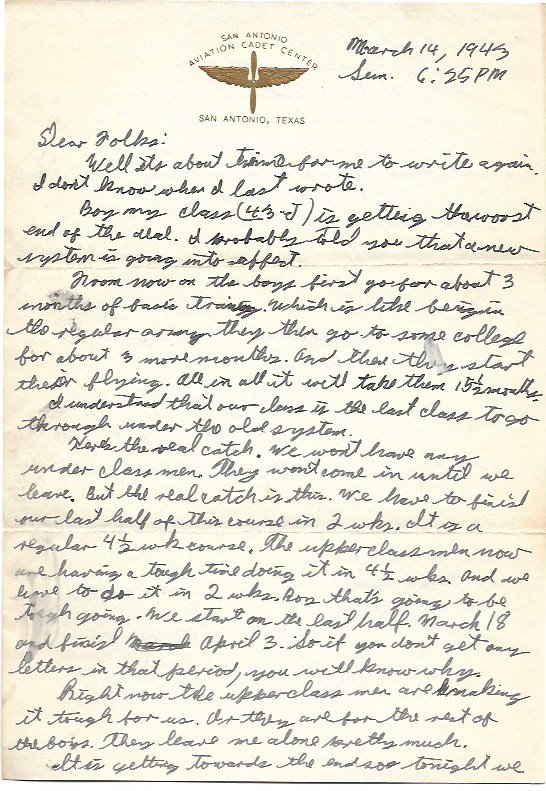 SAN ANTONIO
AVIATION CADET CENTER
SAN ANTONIO, TEXAS
March 14, 1943
Sun. 6:25 PM
Dear Folks:
Well its about time for me to write again.
I don't know when I last wrote.
Boy my class (43-J) is getting the worst
end of the deal. I probably told you that a new
system is going into affect.
From now on the boys first go for about 3
months of basic training. Which is like being in
the regular army. they then go to some college
for about 3 more months. And then they start
their flying. All in all it will take them 15½ months.
I understand that our class is the last class to go
through under the old system.
Here's the real catch. We won't have any
under class men. They won't come in until we
leave. But the real catch is this. We have to finish
our last half of this course in 2 wks. It is a
regular 4½ wk course. The upperclassmen now
are having a tough time doing it in 4½ wks. And we
have to do it in 2 wks. Boy that's going to be
tough going. We start on the last half. March 18
and finish April 3. So if you don't get any
letters in that period, you will know why.
Right now the upperclass men are making
it tough for us. Or they are for the rest of
the boys. They leave me alone pretty much.
It is getting towards the end so tonight we